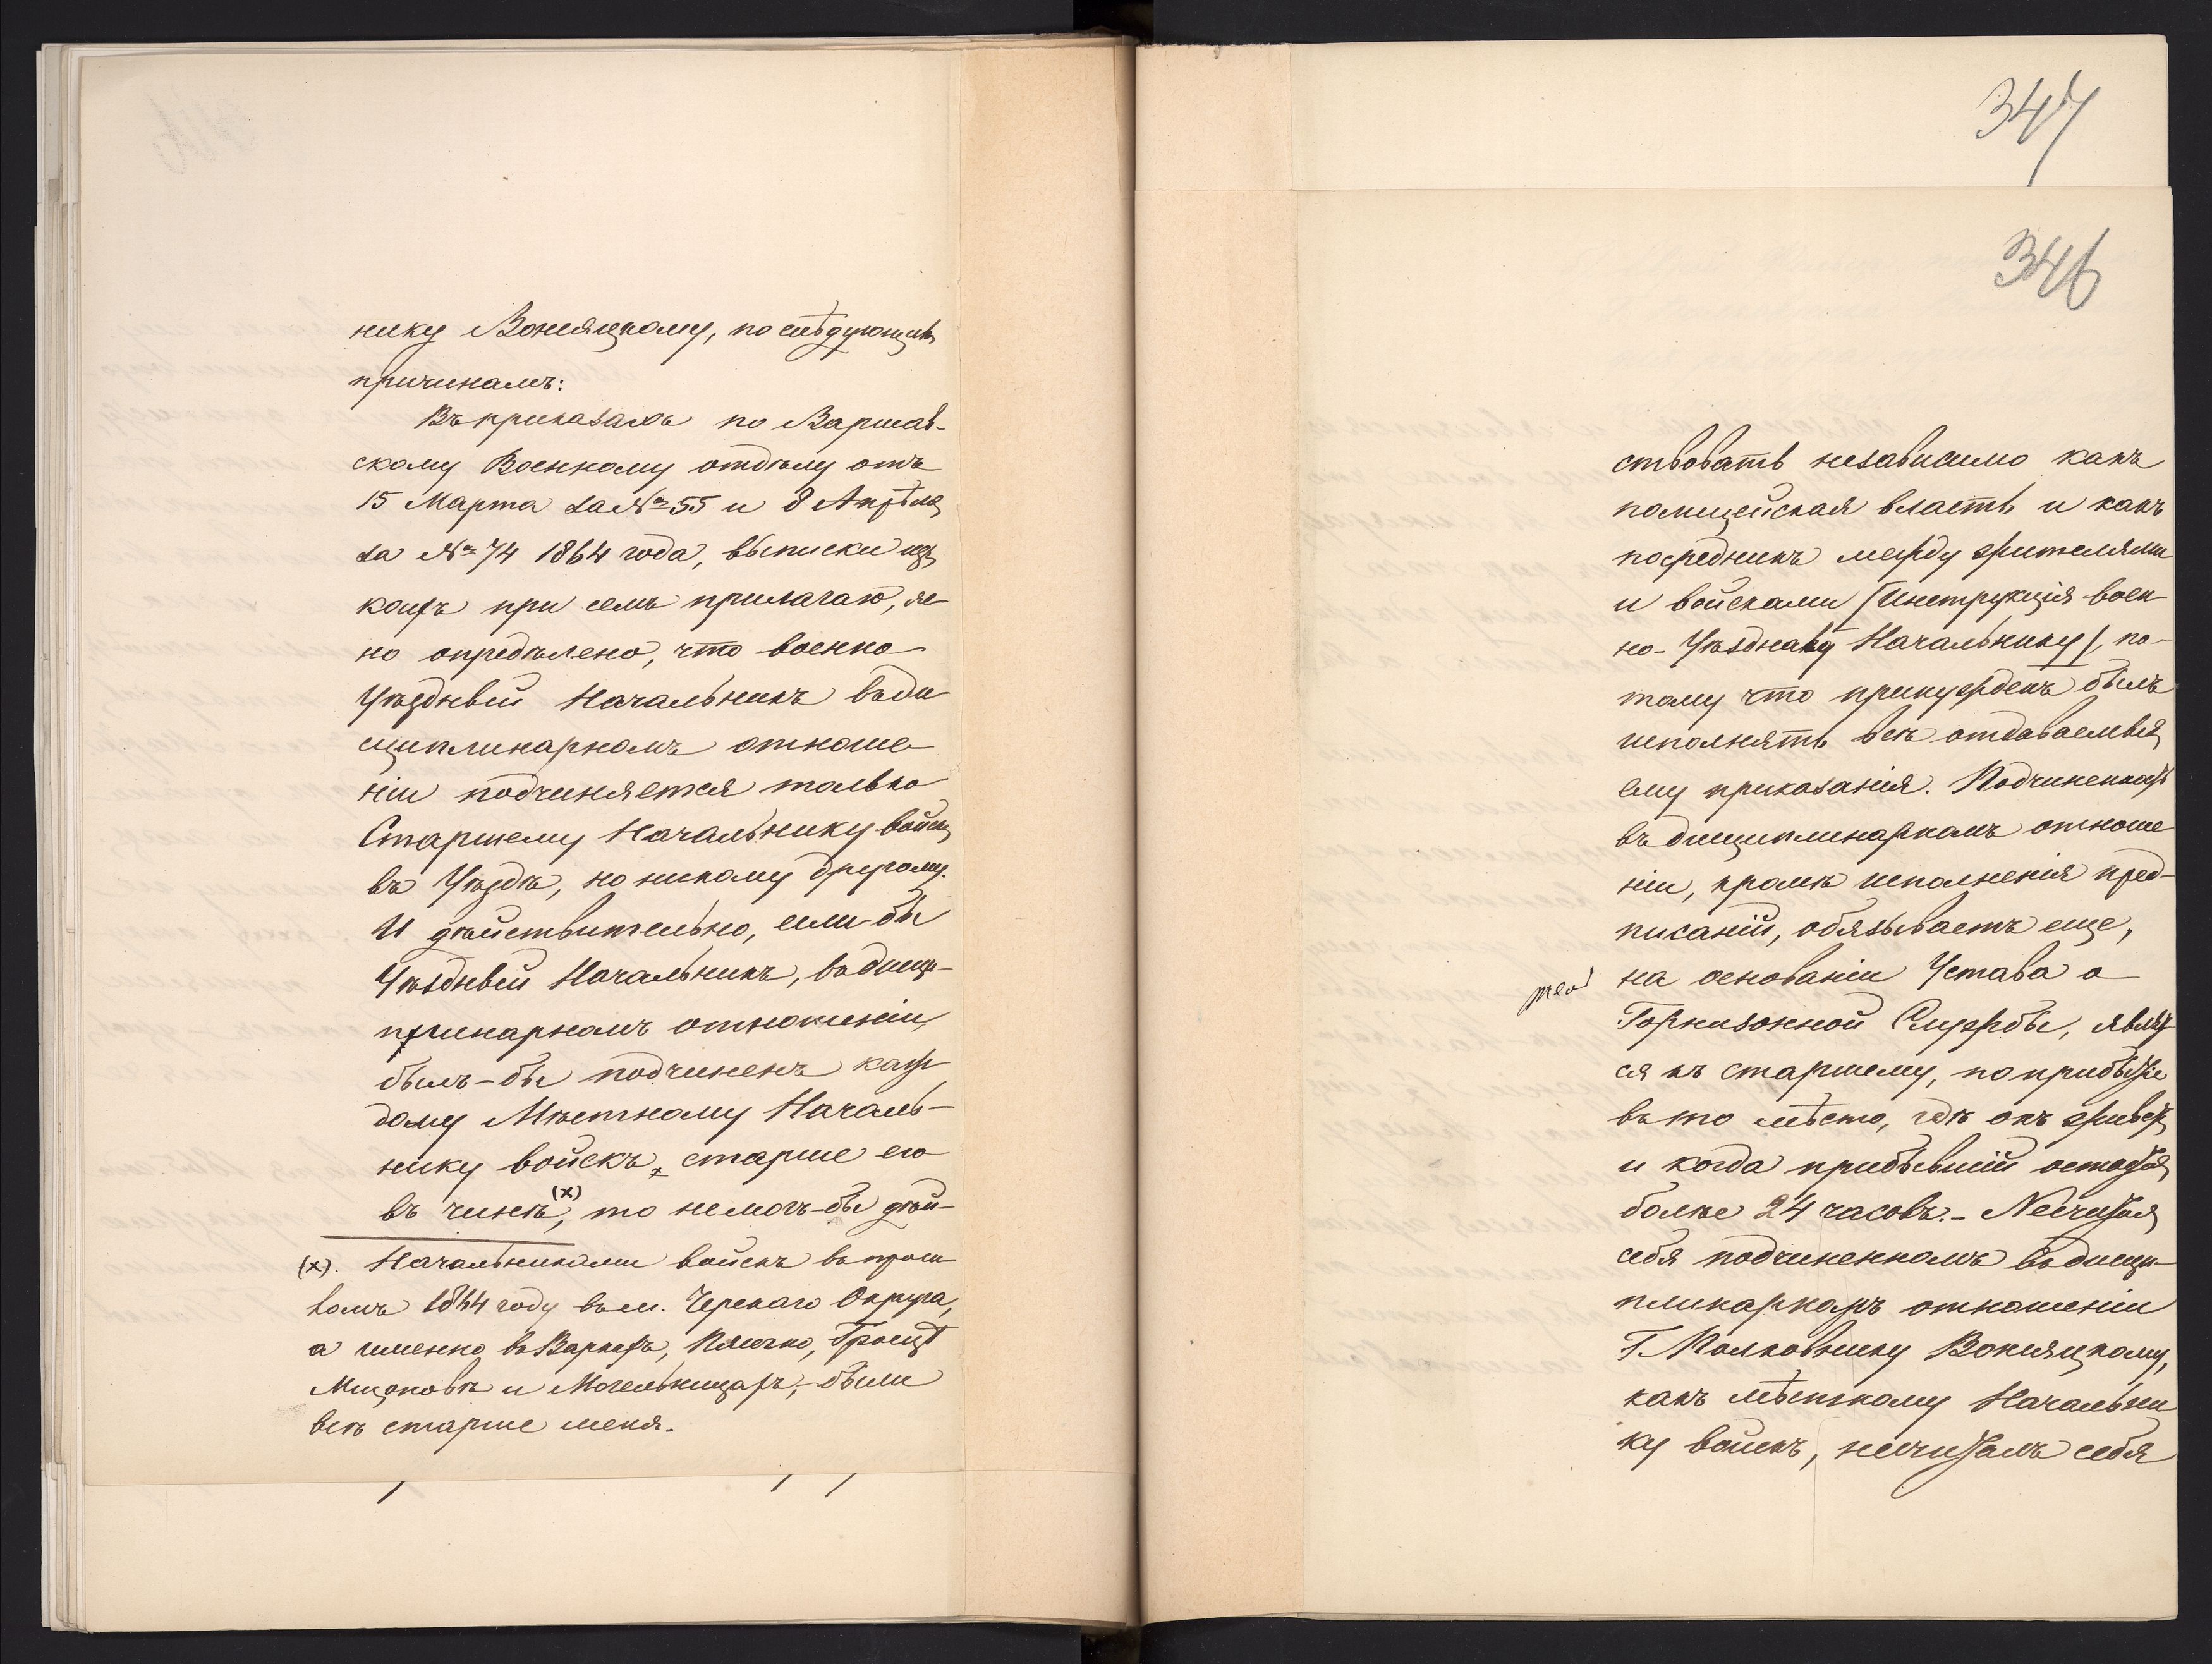 нику Вонсяцкому, по слѣдующимъ
причинамъ:
Въ приказахъ по Варшав-
скому Военному отдѣлу отъ
15 Марта за № 55 и 8 Апрѣля
за № 74 1864 года, выписки изъ
коихъ при семъ прилагаю, яс
но опредѣлено, что военно
Уѣздный Начальникъ въ ди
сциплинарномъ отноше
ніи подчиняется только
Старшему Начальнику войскъ
въ Уѣздѣ, но никому другому.
И дѣйствительно, если-бы
Уѣздный Начальникъ, въ дисци-
плинарномъ отношеніи,
былъ-бы подчиненъ каж
дому Мѣстному Началь-
нику войскъ, старше его
въ чинѣ (x), то не могъ-бы дѣй-
(x). Начальниками войскъ въ прош
ломъ 1864 году въ м. Черскаго Округа,
а именно въ Варкѣ, Гроицѣ
Мщоновѣ и Могельницахъ, были
всѣ старше меня.
347
346
ствовать независимо какъ
полицейская власть и какъ
посредникъ между жителями
и войсками (Инструкція воен
но-Уѣздному Начальнику), по-
тому что принужденъ былъ
исполнять всѣ отдаваемыя
ему приказанія. Подчиненность
въ дисциплинарномъ отноше
ніи, кромѣ исполненія пред-
писаній, обязываетъ еще,
на основаніи Устава о
Горнизонной Службѣ, являть
ся къ старшему, по прибытіи
въ то мѣсто, гдѣ онъ живетъ
и когда прибывшій остается
болѣе 24 часовъ. - Не считая
себя подчиненномъ въ дисци-
плинарномъ отношеніи
Г. Полковнику Вонсяцкому,
какъ мѣстному Начальни
ку войскъ, не считалъ себя